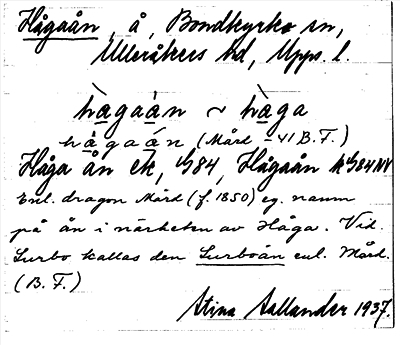 Hågaån, å, Bondkyrko sn,
Ulleråkers hd, Upps. l.
hàgaàn ~ hàga
hàgaán (Mård -41 B.F.)
Håga ån ek, 484, Hågaån k 484 NV
Enl. dragon Mård (f. 1850) eg. namn
på ån i närheten av Håga. Vid
Surbo kallas den Surboån enl. Mård.
(B. F.)
Stina Aallander 1937.